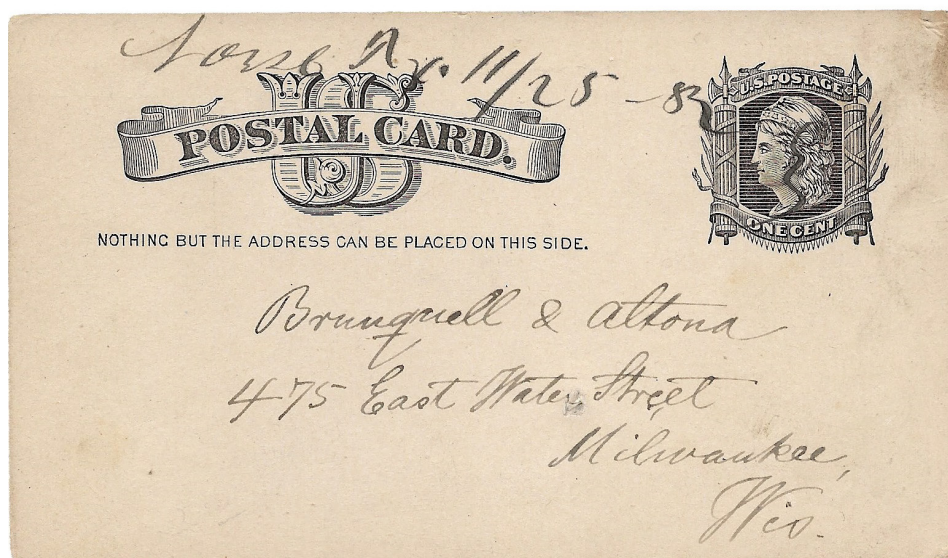 11/25 -82
U.S. POSTAGE
US
POSTAL CARD.
ONE CENT
NOTHING BUT THE ADDRESS CAN BE PLACED ON THIS SIDE.
Brunquell & Altona
475 East Water Street
Milwaukee,
Wis.